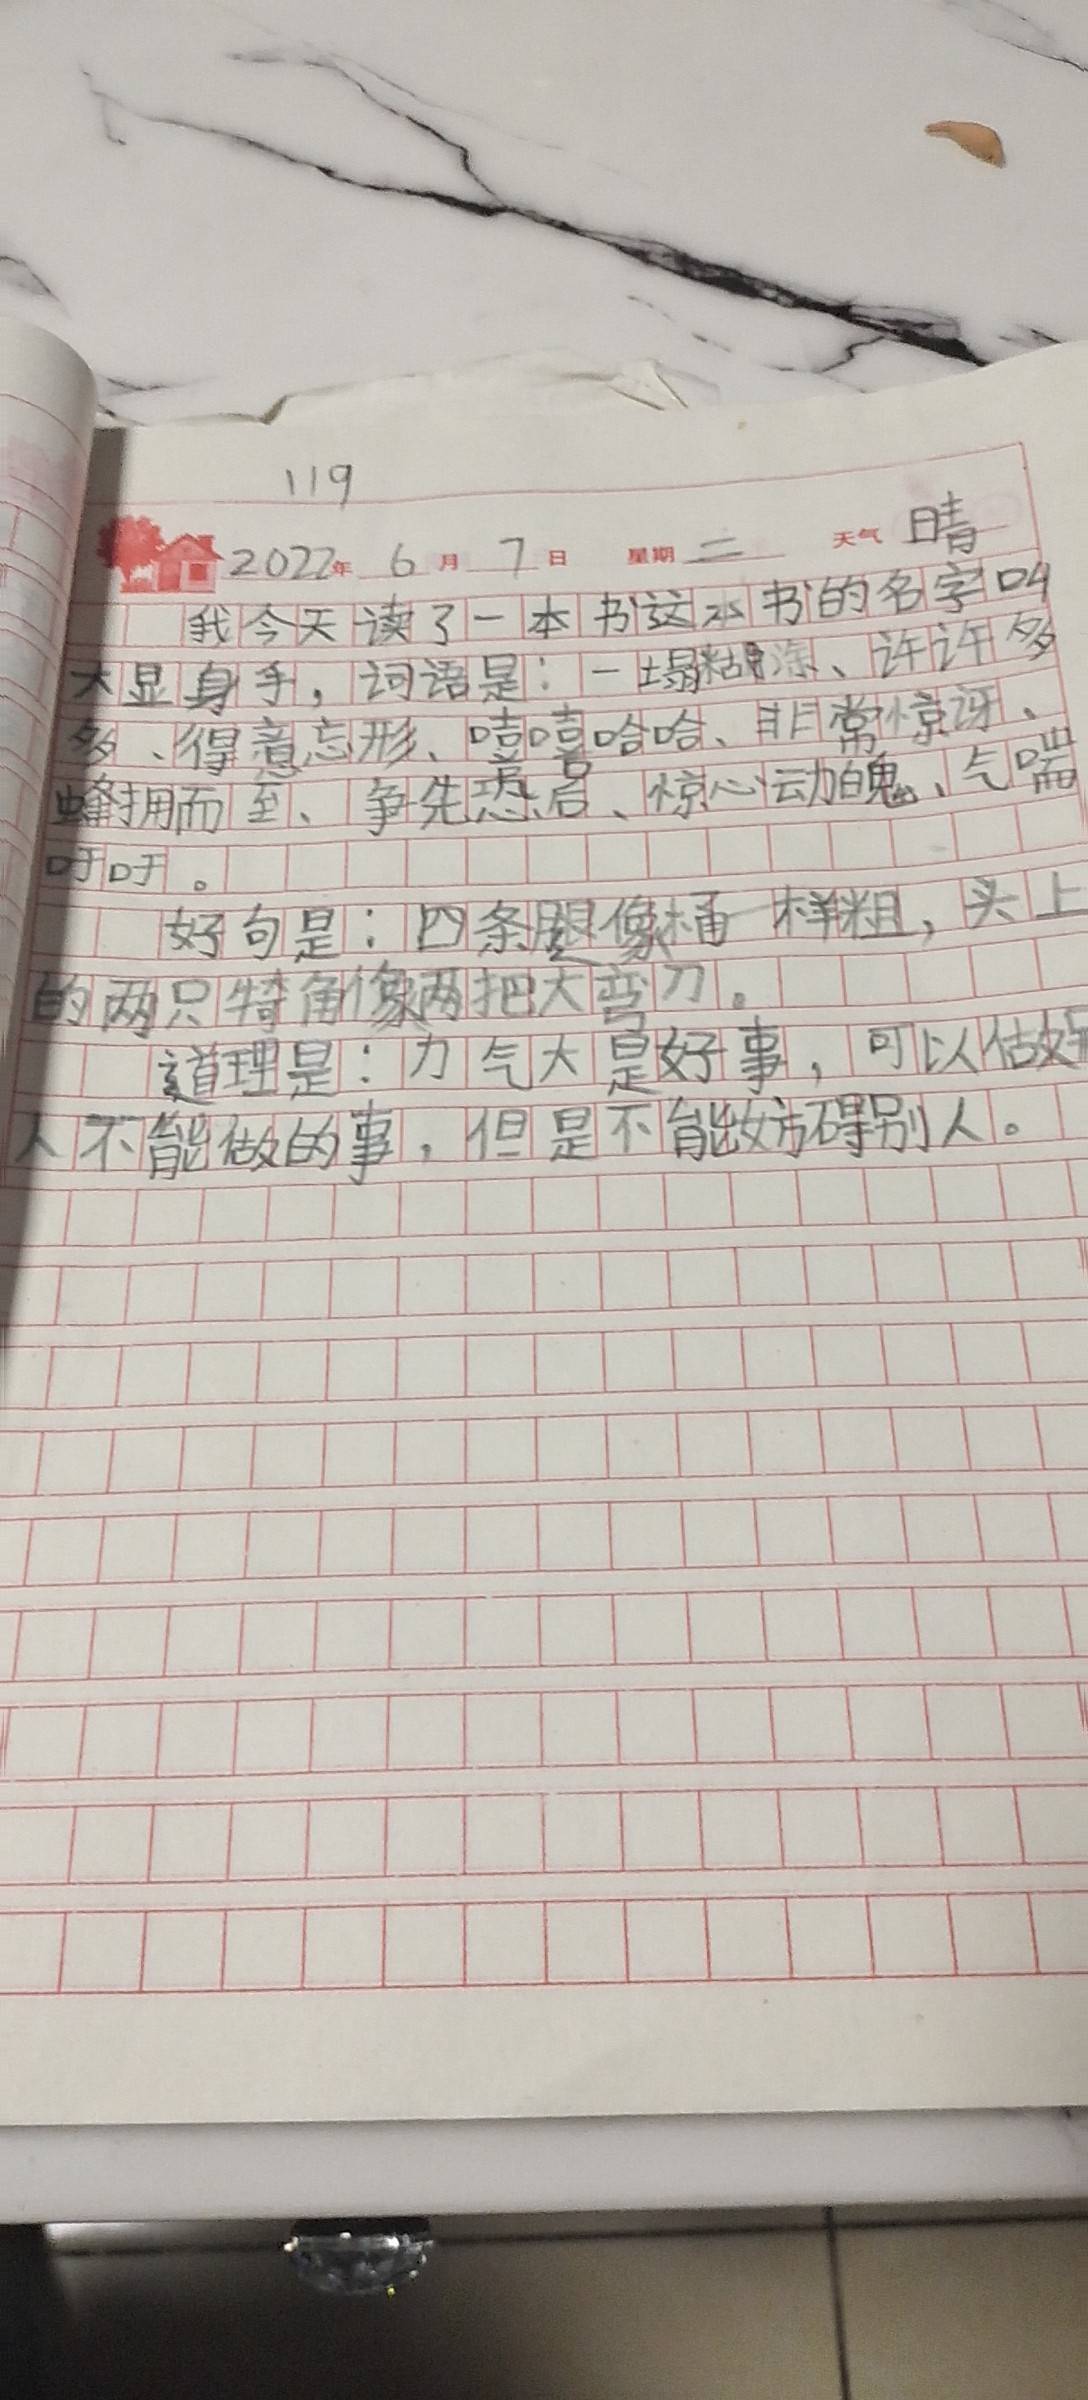 119
2022年 6月 7日 星期二 天气 晴
我今天读了一本书这本书的名字叫
大显身手，词语是：一塌糊涂、许许多
多、得意忘形、嘻嘻哈哈、非常惊讶、
蜂拥而至、争先恐后、惊心动魄、气喘
吁吁。
好句是：四条腿像桶一样粗，头上
的两只犄角像两把大弯刀。
道理是：力气大是好事，可以估好
人不能做的事，但是不能妨碍别人。